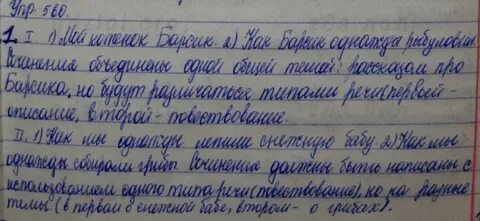 Упр. 560.
1. I 1) Мой котенок Барсик. 2) Как Барсик однажды рыбу ловил.
Сочинения объединены одной общей темой: рассказом про
Барсика, но будут различаться типами речи (первое -
описание, второй - повествование.
II. 1) Как мы однажды лепили снежную бабу. 2) Как мы
однажды собирали грибы. Сочинения должны быть написаны с
использованием одного типа речи (повествование), но на разные
темы. (в первом о снежной бабе, втором - о грибах).